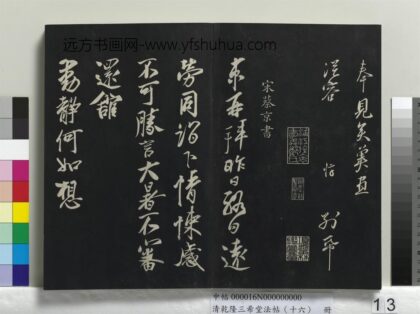 远方书画网-www.yfshuhua.com
奉見矣
從容
宋蔡京書
京再拜昨日終日遠
勞同詣下情悚感
不可勝言大暑不審
還館
動靜何如想
13
中帖 000016N000000000
清乾隆三希堂法帖（十六） 册